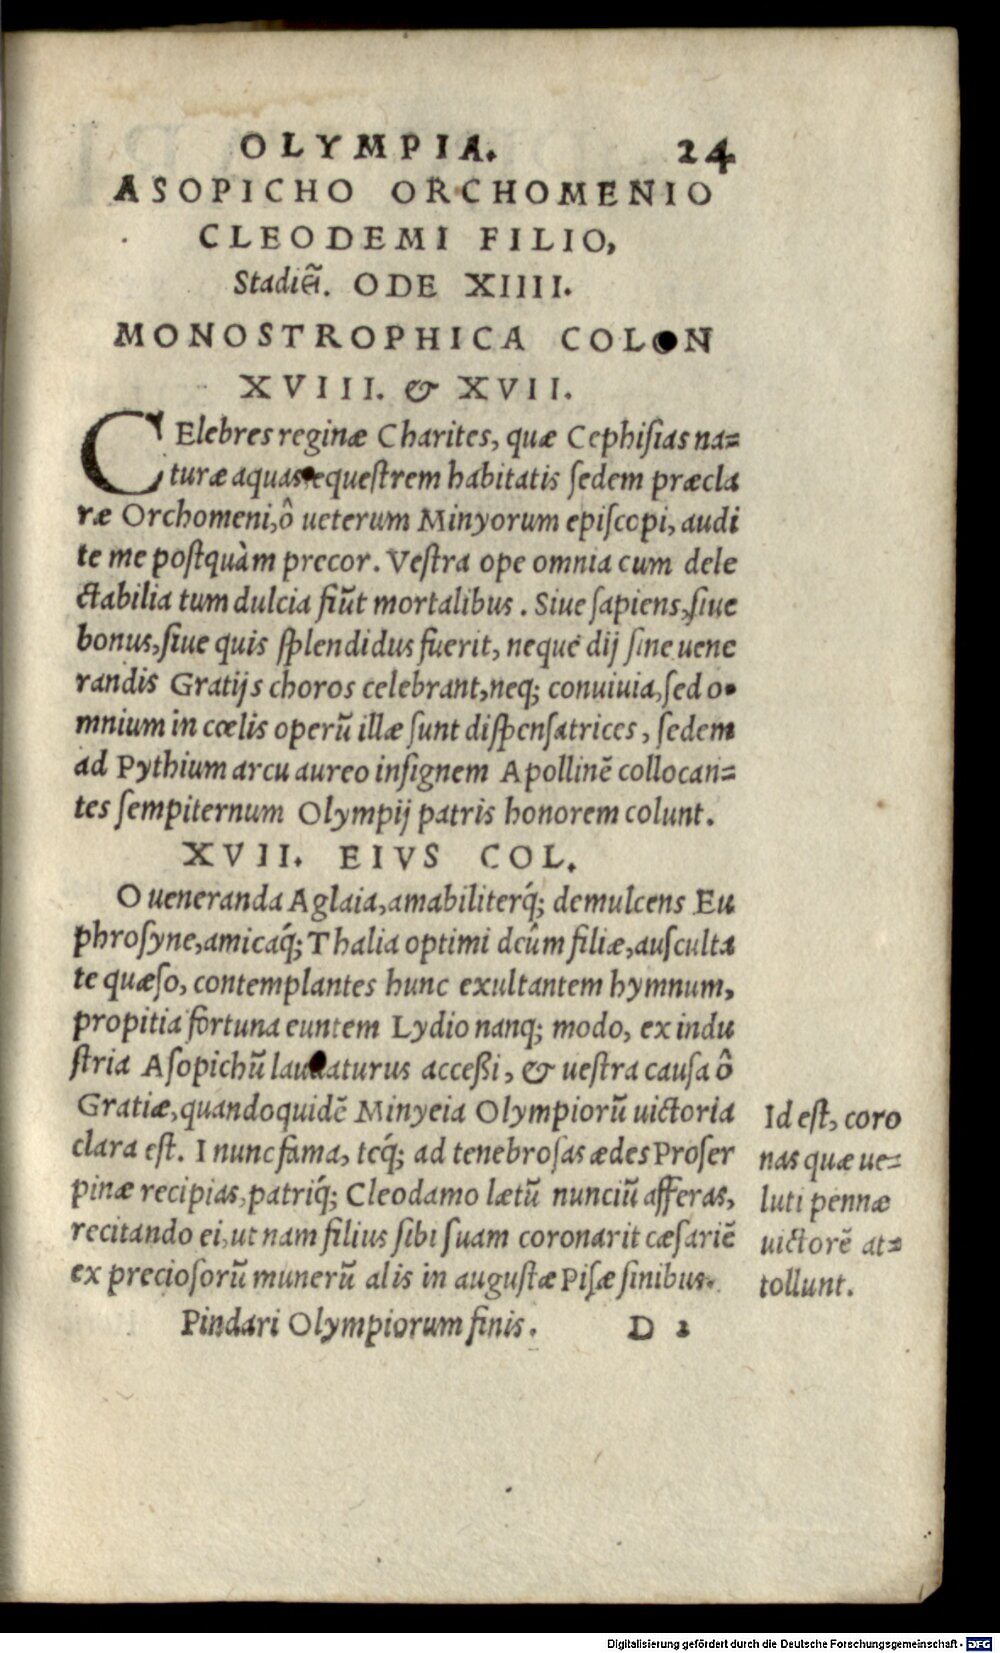 OLYMPIA. 24
ASOPICHO ORCHOMENIO
CLEODEMI FILIO,
Stadiẽĩ. ODE XIIII.
MONOSTROPHICA COLON
XVIII. & XVII.
CElebres reginæ Charites, quæ Cephisias na=
turæ aquas equestrem habitatis sedem præcla
ræ Orchomeni, ô ueterum Minyorum episcopi, audi
te me postquàm precor. Vestra ope omnia cum dele
ctabilia tum dulcia fiũt mortalibus. Siue sapiens, siue
bonus, siue quis splendidus fuerit, neque dij sine uene
randis Gratijs choros celebrant, neq; conuiuia, sed o-
mnium in cœlis operũ illæ sunt dispensatrices, sedem
ad Pythium arcu aureo insignem Apollinẽ collocan=
tes sempiternum Olympij patris honorem colunt.
XVII. EIVS COL.
O ueneranda Aglaia, amabiliterq́; demulcens Eu
phrosyne, amicaq́; Thalia optimi deûm filiæ, ausculta
te quæso, contemplantes hunc exultantem hymnum,
propitia fortuna euntem Lydio nanq; modo, ex indu
stria Asopichũ laudaturus accessi, & uestra causa ô
Gratiæ, quandoquidẽ Minyeia Olympiorũ uictoria
clara est. I nunc fama, teq́; ad tenebrosas ædes Proser
pinæ recipias, patriq́; Cleodamo lætũ nunciũ afferas,
recitando ei, ut nam filius sibi suam coronarit cæsariẽ
ex preciosorũ munerũ alis in augustæ Pisæ sinibus.
Id est, coro
nas quæ ue=
luti pennæ
uictorẽ at=
tollunt.
Pindari Olympiorum finis. D 2
Digitalisierung gefördert durch die Deutsche Forschungsgemeinschaft - DFG